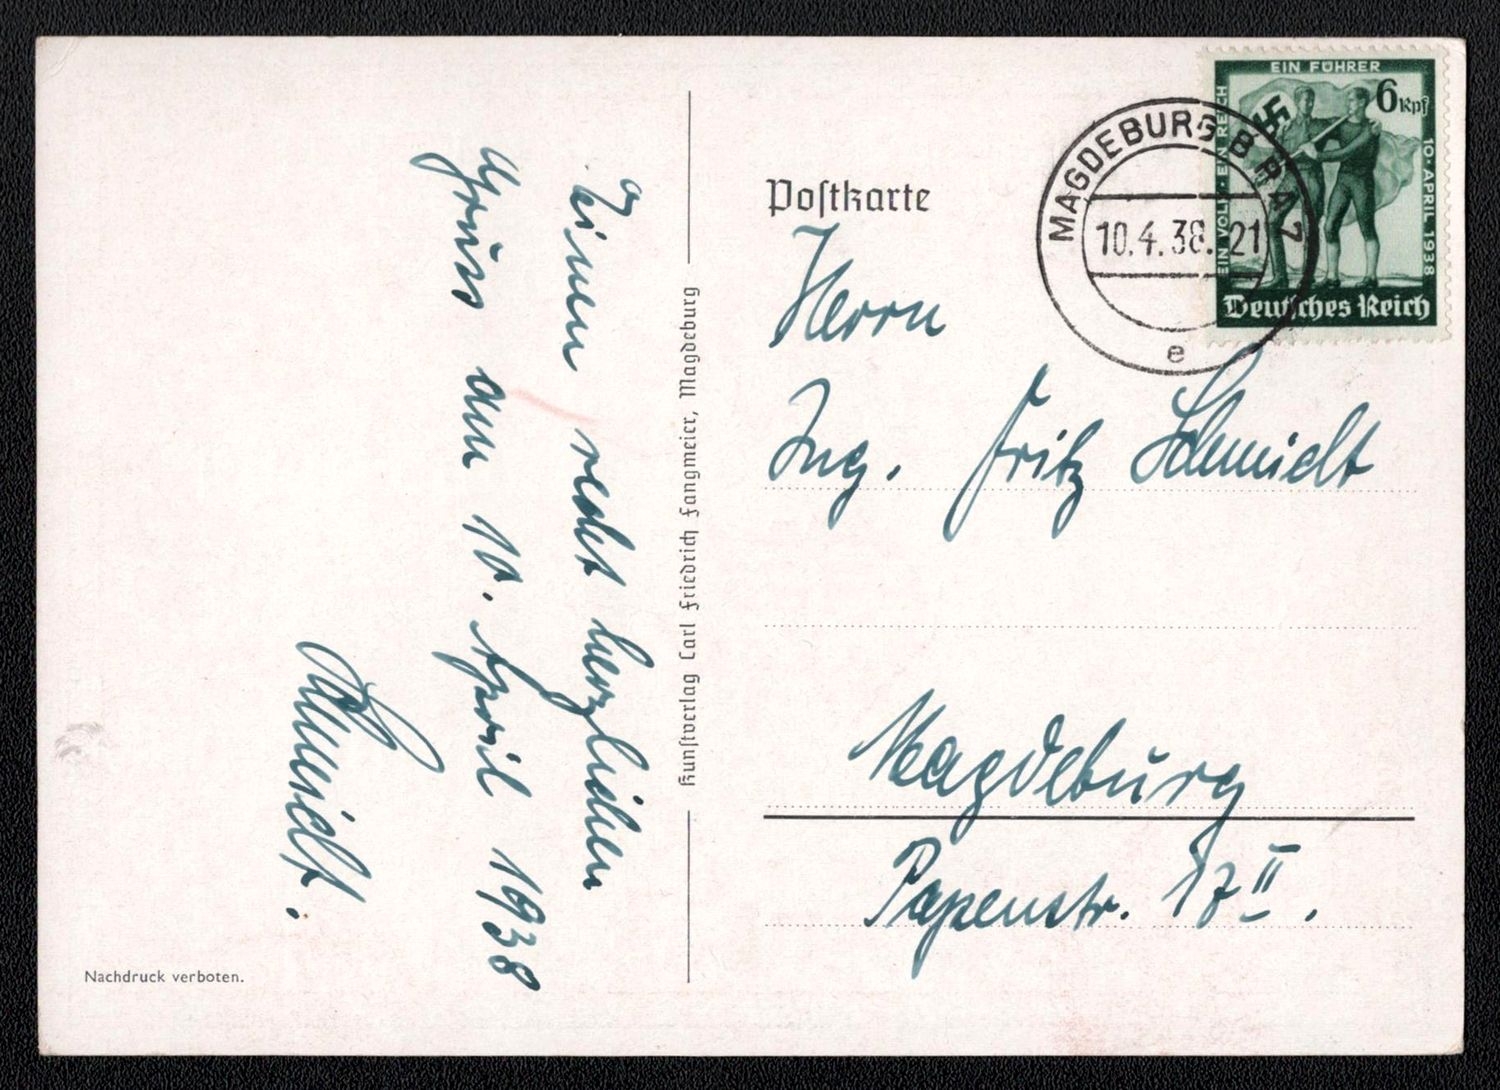 Einen recht herzlichen
Gruss am 10. April 1938
Schmidt.
Nachdruck verboten.
Kunstverlag Carl Friedrich Fangmeier, Magdeburg
Postkarte
MAGDEBURG 8 BPA 7
10.4.38. 21
e
EIN VOLK · EIN REICH
EIN FÜHRER
10 · APRIL 1938
6 Rpf
Deutsches Reich
Herrn
Ing. Fritz Schmidt
Magdeburg
Papenstr. 17 II.